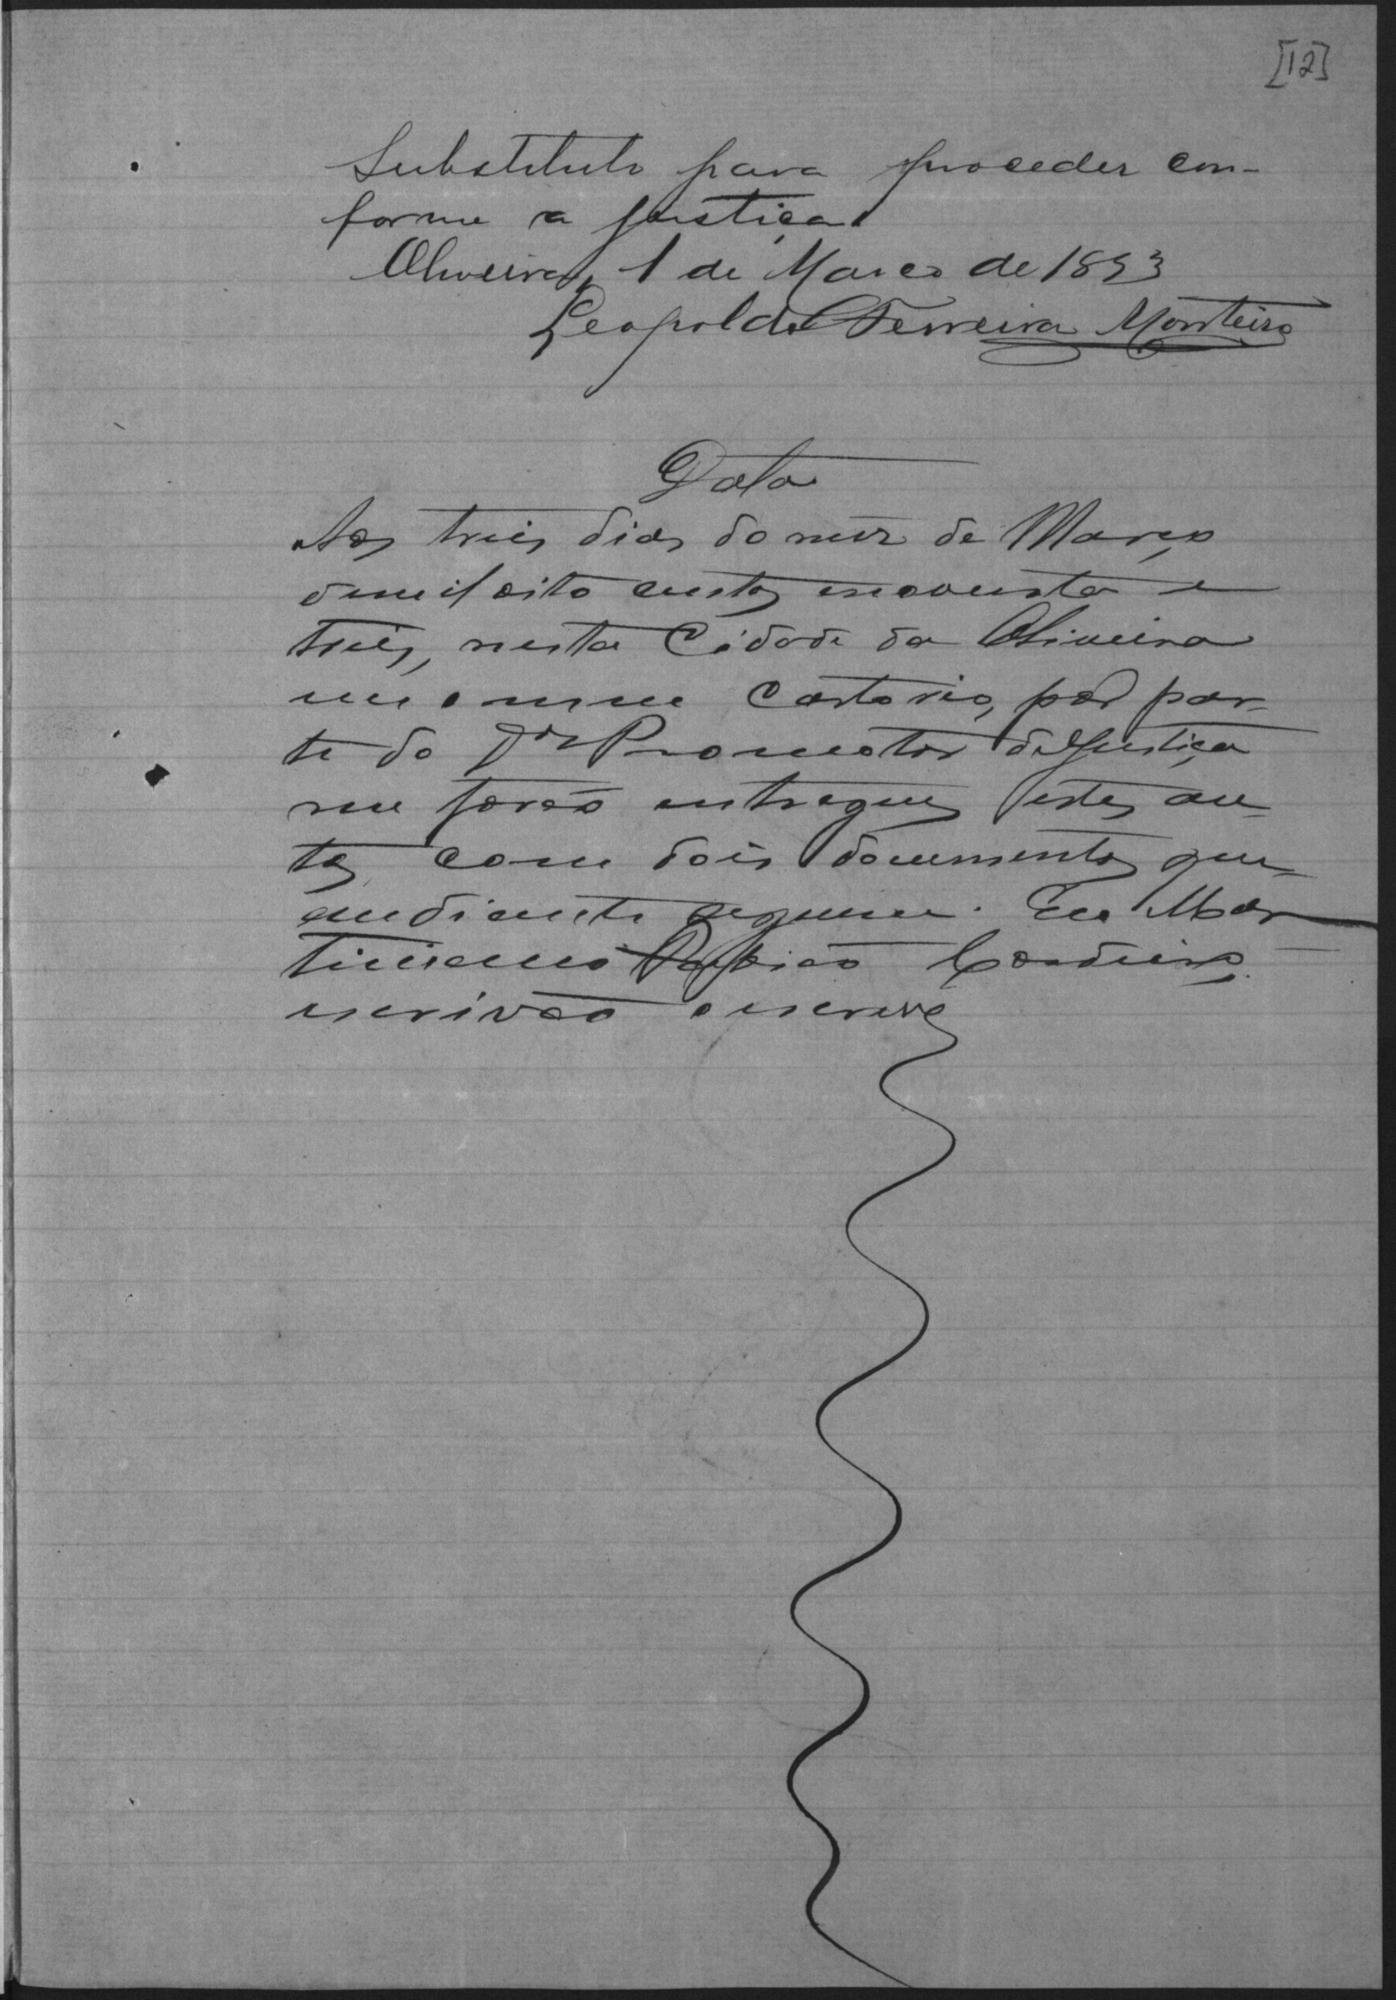 [12]
Substituto para proceder con-
forme a justiça.
Oliveira, 1 de Março de 1893
Leopoldo Ferreira Monteiro
Data
Aos tres dias do mez de Março
de mil oito centos e noventa e
tres, nesta Cidade da Oliveira
em o meu Cartorio, por par-
te do Dr Promotor de Justiça
me forão entregues estes au-
tos com dois documentos que
andiante seguem. Eu Mar
tiniano Cordeiro,
escrivão o escrevi